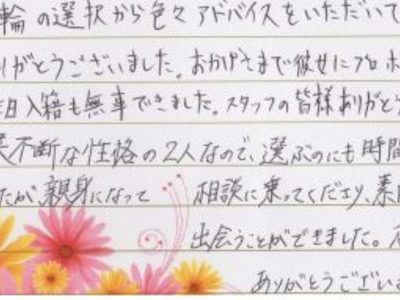 輪の選択から色々アドバイスをいただいて
りがとうございました。おかげさまで彼女にプロポ
日入籍も無事できました。スタッフの皆様ありがとう
不断な性格の2人なので、選ぶのにも時間
たが親身になって 相談に乗ってくださり、素
出会うことができました。
ありがとうござい